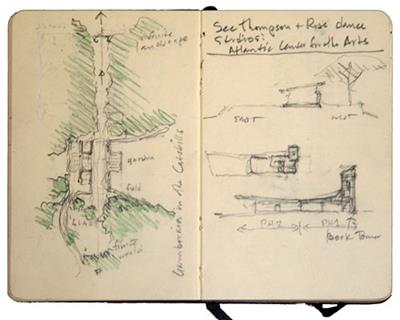 infinite
landscape
garden
field
finite
world
in the Catskills
See Thompson + Rose dance
studios:
Atlantic Center for the Arts
EAST WEST
PH2 PH1
Book Tower